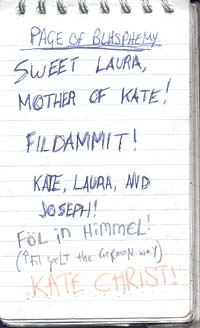 PAGE OF BLASPHEMY
SWEET LAURA,
MOTHER OF KATE!
FILDAMMIT!
KATE, LAURA, AND
JOSEPH!
FÖL in HiMMEL!
(↑Fil spelt the German way)
KATE CHRIST!